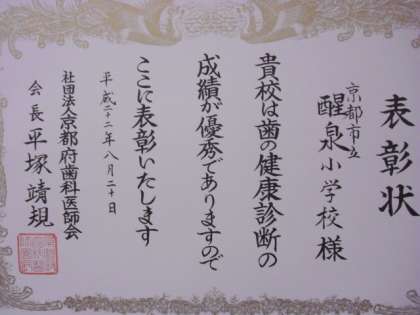 表彰状
京都市立
醒泉小学校様
貴校は歯の健康診断の
成績が優秀でありますので
ここに表彰いたします
平成二十二年八月二十日
社団法人京都府歯科医師会
会長平塚靖規